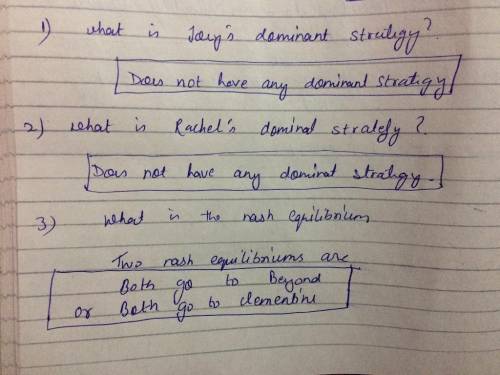 1) What is Joey's dominant strategy?
Does not have any dominant strategy
2) What is Rachel's dominal strategy?
Does not have any dominat strategy.
3) What is the nash equilibrium
Two nash equilibriums are
Both go to Beyond
or Both go to clementine